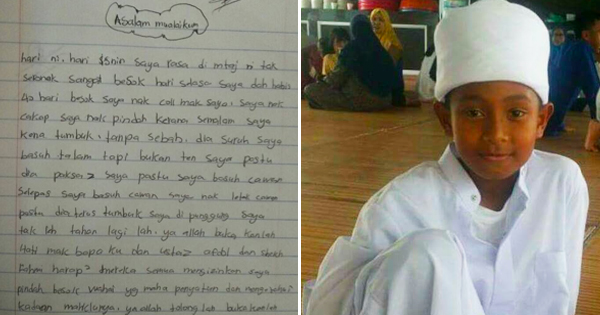 Asalam mualaikum
hari ni, hari isnin saya rasa di mtaj ni tak
seronok sangat besok hari selasa saya dah habis
40 hari besok saya nak call mak saya, saya nak
cakap saya nak pindah kerana semalam saya
kena tumbuk, tanpa sebab, dia suruh saya
basuh talam tapi bukan ten saya pastu
dia paksa2 saya pastu saya basuh cawan
selepas saya basuh cawan saya nak letak cawan
pastu dia terus tumbuk saya di punggung saya
tak lah tahan lagi lah, ya allah buka kanlah
Hati mak bapa ku dan ustaz afdil dan
Fahmi harap2 mereka semua mengizinkan saya
pindah besok wahai yg maha penyayang dan mengetahui
keadaan makhluknya, ya allah tolong lah bukakanlah